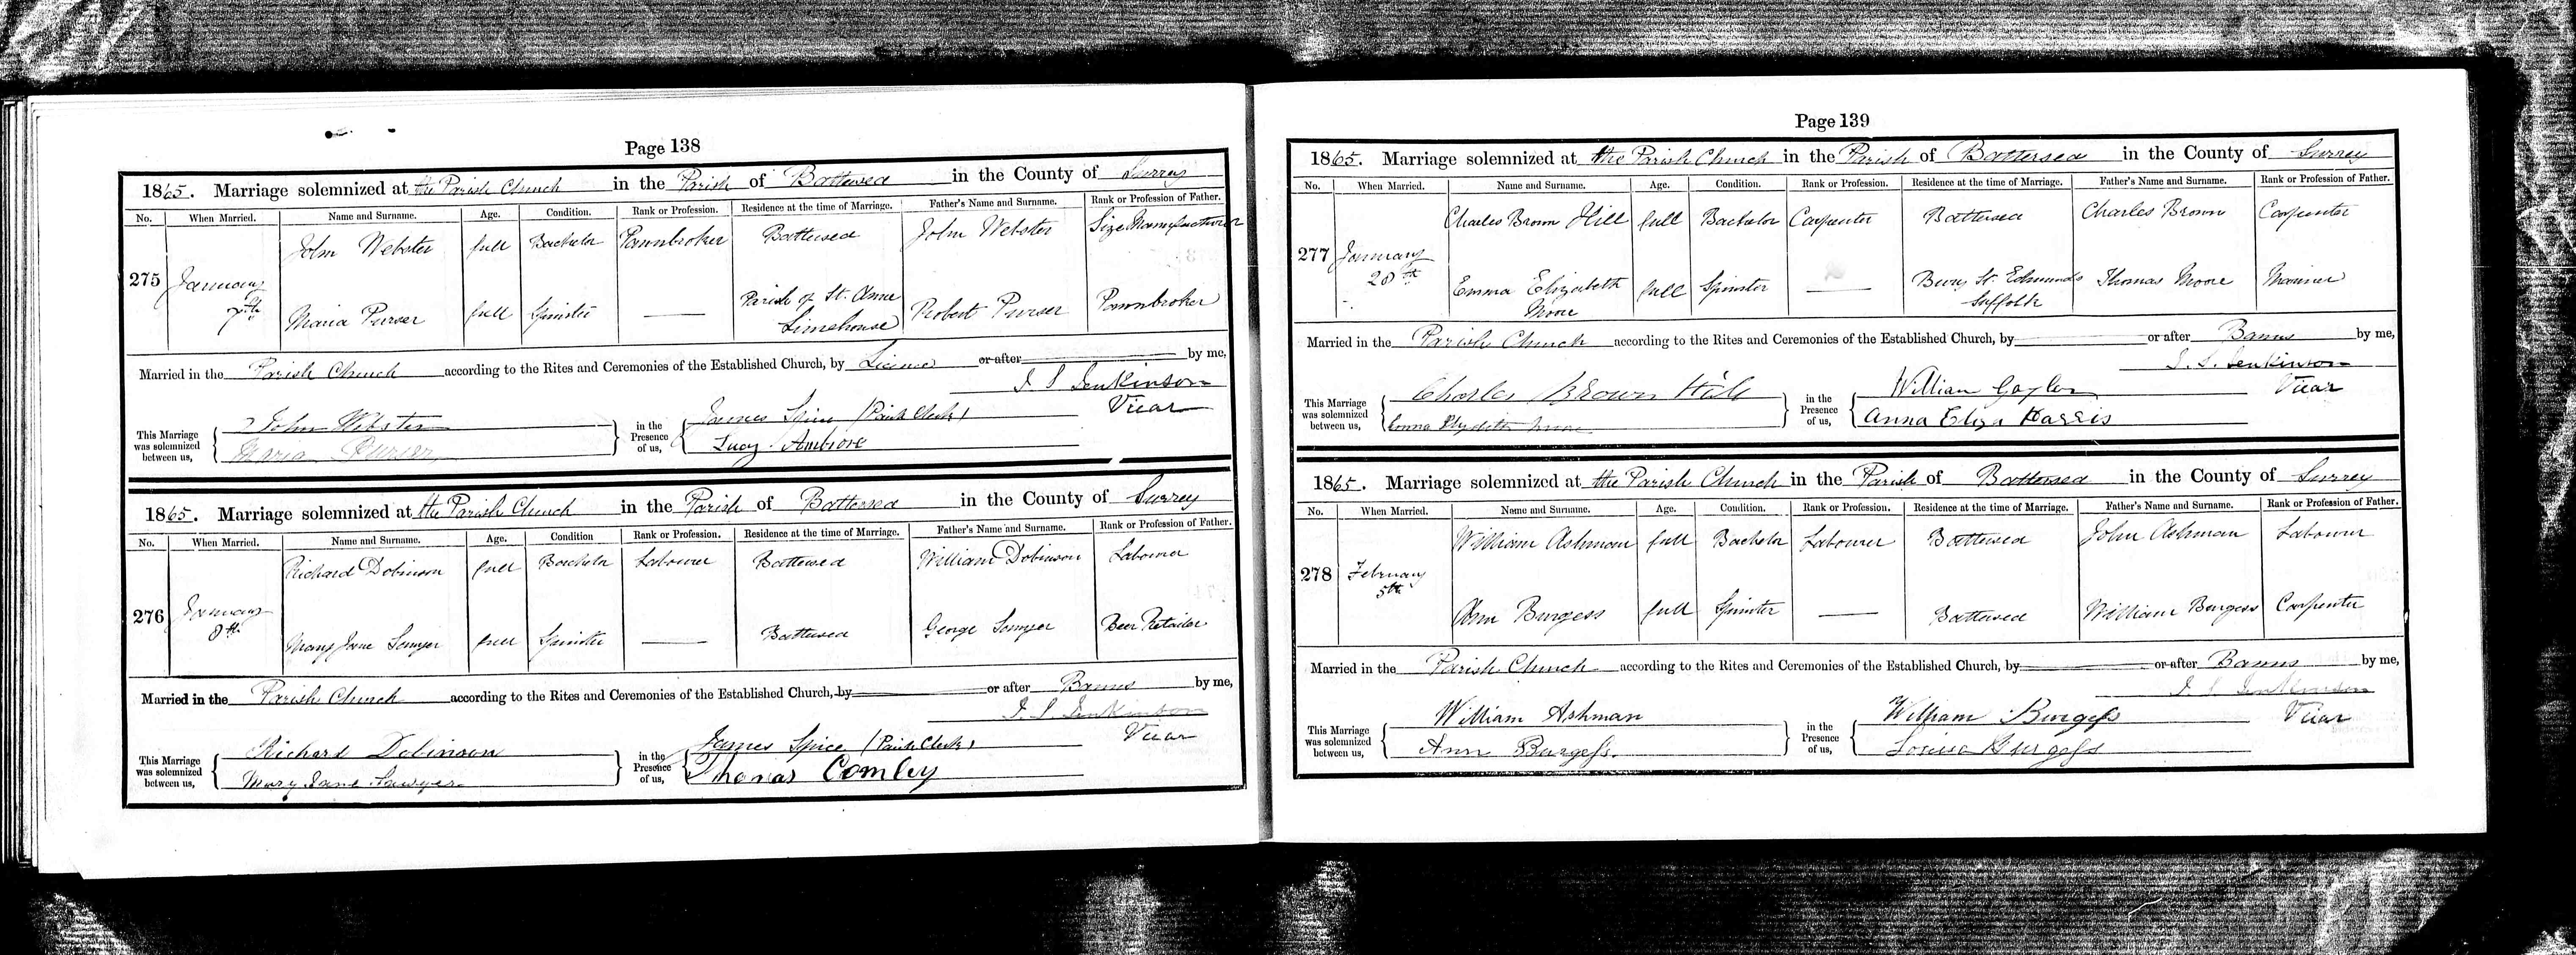 Page 138
1865. Marriage solemnized at the Parish Church in the Parish of Battersea in the County of Surrey
No. When Married. Name and Surname. Age. Condition. Rank or Profession. Residence at the time of Marriage. Father's Name and Surname. Rank or Profession of Father.
John Webster full Bachelor Pawnbroker Battersea John Webster Size Manufacturer
275 January 7th
Maria Purser full Spinster Parish of St. Anne Limehouse Robert Purser Pawnbroker
Married in the Parish Church according to the Rites and Ceremonies of the Established Church, by Licence or after by me,
J. S. Jenkinson
Vicar
This Marriage was solemnized between us, John Webster
Maria Purser
in the Presence of us, James Spice (Parish Clerk)
Lucy Ambrose
1865. Marriage solemnized at the Parish Church in the Parish of Battersea in the County of Surrey
No. When Married. Name and Surname. Age. Condition Rank or Profession. Residence at the time of Marriage. Father's Name and Surname. Rank or Profession of Father.
Richard Dobinson full Bachelor Labourer Battersea William Dobinson Labourer
276 January 8th
Mary Jane Sawyer full Spinster Battersea George Sawyer Beer Retailer
Married in the Parish Church according to the Rites and Ceremonies of the Established Church, by or after Banns by me,
J. S. Jenkinson
Vicar
This Marriage was solemnized between us, Richard Dobinson
Mary Jane Sawyer
in the Presence of us, James Spice (Parish Clerk)
Thomas Comley
Page 139
1865. Marriage solemnized at the Parish Church in the Parish of Battersea in the County of Surrey
No. When Married. Name and Surname. Age. Condition. Rank or Profession. Residence at the time of Marriage. Father's Name and Surname. Rank or Profession of Father.
Charles Brown Hill full Bachelor Carpenter Battersea Charles Brown Carpenter
277 January 28th
Emma Elizabeth Moore full Spinster Bury St. Edmunds Suffolk Thomas Moore Mariner
Married in the Parish Church according to the Rites and Ceremonies of the Established Church, by or after Banns by me,
J. S. Jenkinson
Vicar
This Marriage was solemnized between us, Charles Brown Hill
Emma Moore
in the Presence of us, William Gaylor
Anna Eliza Harris
1865. Marriage solemnized at the Parish Church in the Parish of Battersea in the County of Surrey
No. When Married. Name and Surname. Age. Condition. Rank or Profession. Residence at the time of Marriage. Father's Name and Surname. Rank or Profession of Father.
William Ashman full Bachelor Labourer Battersea John Ashman Labourer
278 February 5th
Ann Burgess full Spinster Battersea William Burgess Carpenter
Married in the Parish Church according to the Rites and Ceremonies of the Established Church, by or after Banns by me,
J. S. Jenkinson
Vicar
This Marriage was solemnized between us, William Ashman
Ann Burgess.
in the Presence of us, William Burgess
Louisa Burgess